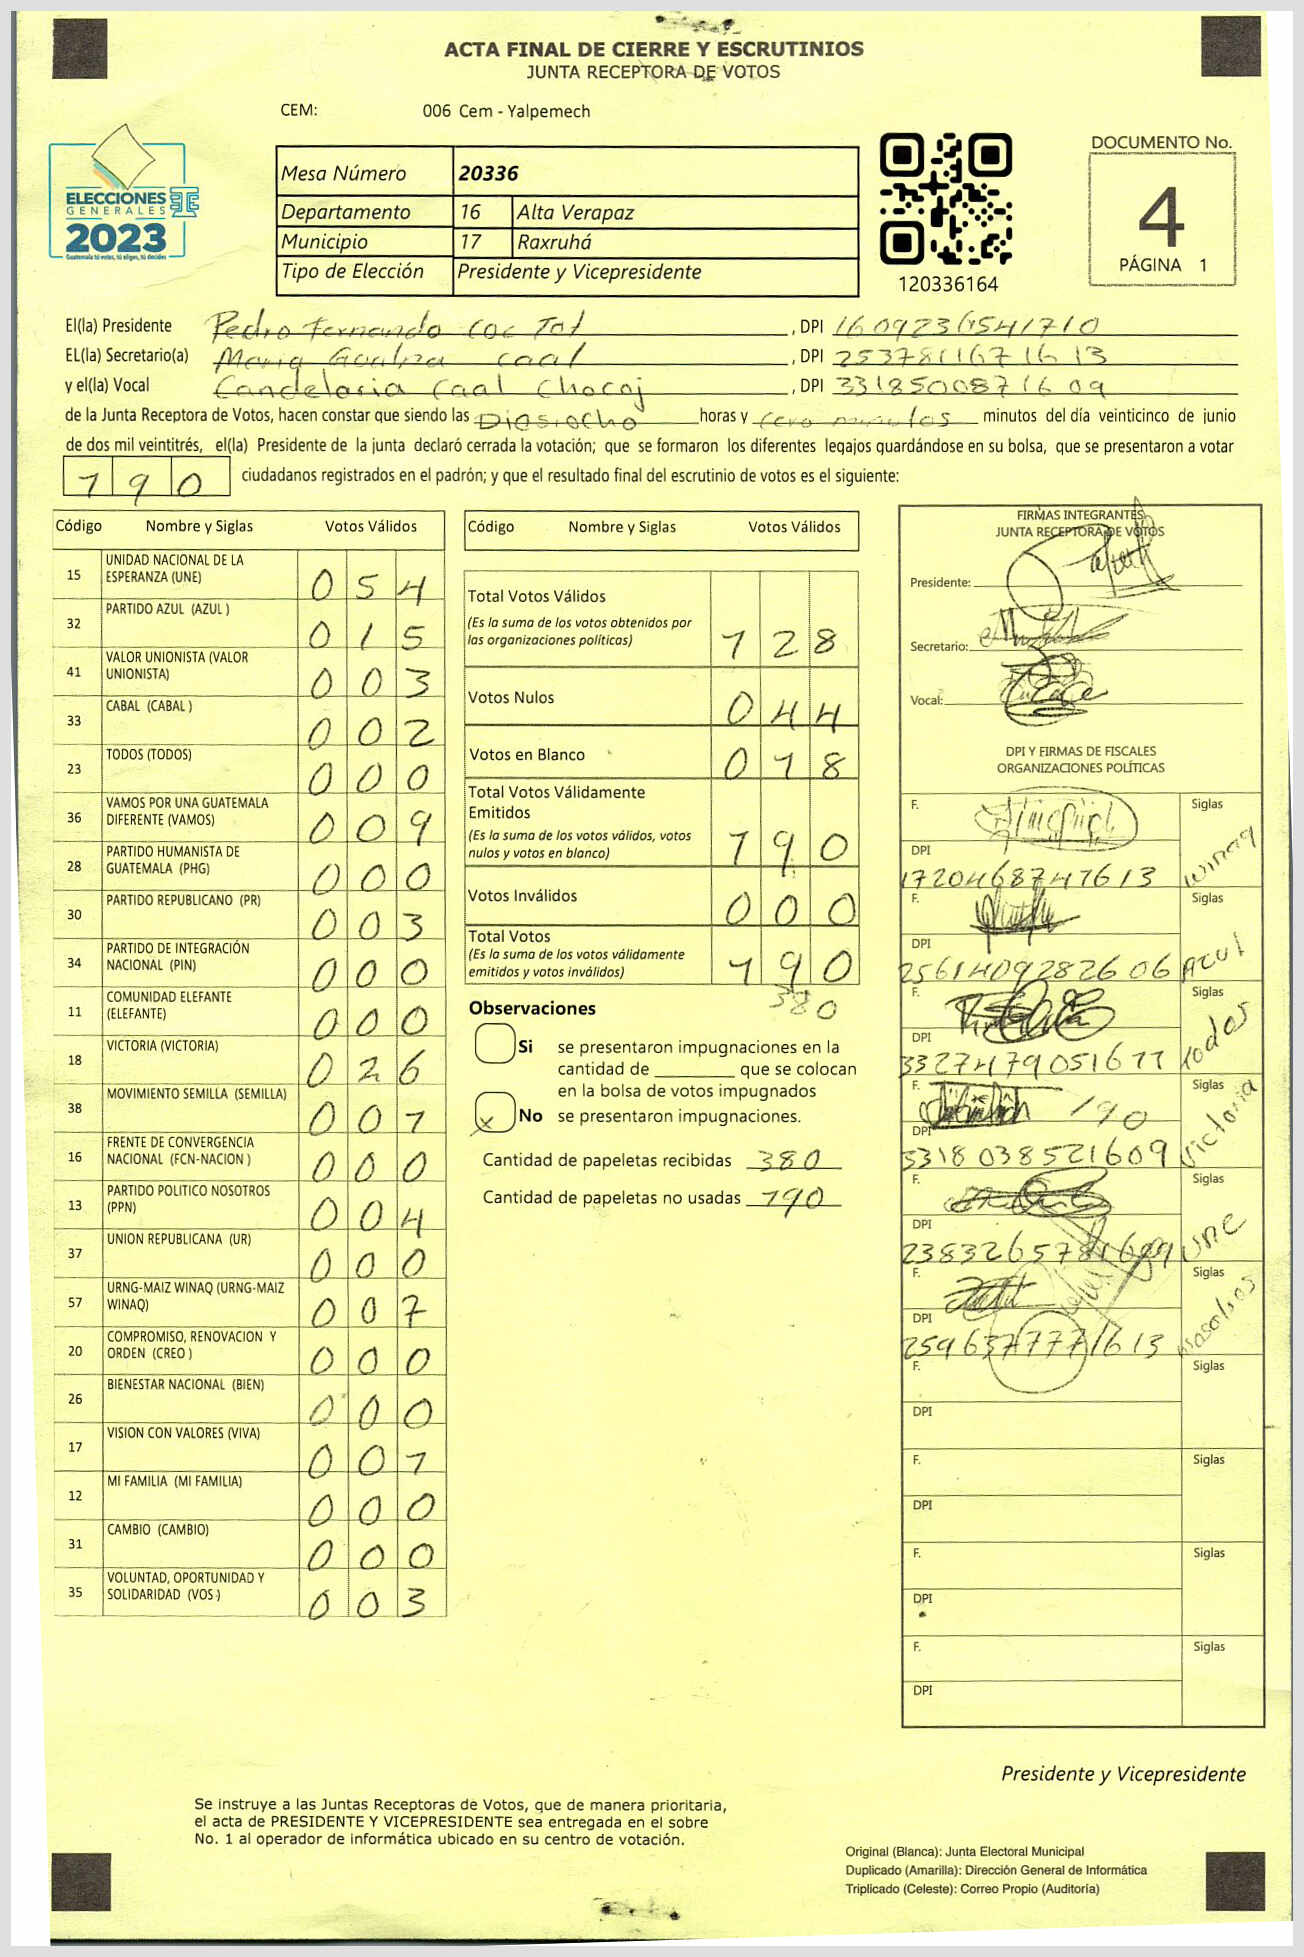 ACTA FINAL DE CIERRE Y ESCRUTINIOS
JUNTA RECEPTORA DE VOTOS
CEM: 006 Cem - Yalpemech
ELECCIONES
GENERALES
2023
Guatemala tú votas, tú eliges, tú decides
Mesa Número 20336
Departamento 16 Alta Verapaz
Municipio 17 Raxruhá
Tipo de Elección Presidente y Vicepresidente
120336164
DOCUMENTO No.
4
PÁGINA 1
El(la) Presidente Pedro Fernando Coc Tot, DPI
EL(la) Secretario(a) Maria caal, DPI 2537811671613
y el(la) Vocal Candelaria Caal Chocoj, DPI 3318500871609
de la Junta Receptora de Votos, hacen constar que siendo las Diosiocho horas y cero minutos minutos del día veinticinco de junio
de dos mil veintitrés, el(la) Presidente de la junta declaró cerrada la votación; que se formaron los diferentes legajos guardándose en su bolsa, que se presentaron a votar
190 ciudadanos registrados en el padrón; y que el resultado final del escrutinio de votos es el siguiente:
Código Nombre y Siglas Votos Válidos
15 UNIDAD NACIONAL DE LA ESPERANZA (UNE) 054
32 PARTIDO AZUL (AZUL ) 015
41 VALOR UNIONISTA (VALOR UNIONISTA) 003
33 CABAL (CABAL ) 002
23 TODOS (TODOS) 000
36 VAMOS POR UNA GUATEMALA DIFERENTE (VAMOS) 009
28 PARTIDO HUMANISTA DE GUATEMALA (PHG) 000
30 PARTIDO REPUBLICANO (PR) 003
34 PARTIDO DE INTEGRACIÓN NACIONAL (PIN) 000
11 COMUNIDAD ELEFANTE (ELEFANTE) 000
18 VICTORIA (VICTORIA) 026
38 MOVIMIENTO SEMILLA (SEMILLA) 001
16 FRENTE DE CONVERGENCIA NACIONAL (FCN-NACION ) 000
13 PARTIDO POLITICO NOSOTROS (PPN) 004
37 UNION REPUBLICANA (UR) 000
57 URNG-MAIZ WINAQ (URNG-MAIZ WINAQ) 007
20 COMPROMISO, RENOVACION Y ORDEN (CREO ) 000
26 BIENESTAR NACIONAL (BIEN) 000
17 VISION CON VALORES (VIVA) 001
12 MI FAMILIA (MI FAMILIA) 000
31 CAMBIO (CAMBIO) 000
35 VOLUNTAD, OPORTUNIDAD Y SOLIDARIDAD (VOS ) 003
Código Nombre y Siglas Votos Válidos
Total Votos Válidos
(Es la suma de los votos obtenidos por
las organizaciones políticas) 128
Votos Nulos 044
Votos en Blanco 018
Total Votos Válidamente
Emitidos
(Es la suma de los votos válidos, votos
nulos y votos en blanco) 190
Votos Inválidos 000
Total Votos
(Es la suma de los votos válidamente
emitidos y votos inválidos) 190
380
Observaciones
Si se presentaron impugnaciones en la
cantidad de ________ que se colocan
en la bolsa de votos impugnados
X No se presentaron impugnaciones.
Cantidad de papeletas recibidas 380
Cantidad de papeletas no usadas 190
FIRMAS INTEGRANTES
JUNTA RECEPTORA DE VOTOS
Presidente:
Secretario:
Vocal:
DPI Y FIRMAS DE FISCALES
ORGANIZACIONES POLÍTICAS
F. Siglas winaq
DPI 1720468747613
F. Siglas Azul
DPI 2561409282606
F. Siglas todos
DPI
F. 190 Siglas victoria
DPI 3318038521609
F. Siglas une
DPI
F. Siglas
DPI 2596377771613
F. Siglas
DPI
F. Siglas
DPI
F. Siglas
DPI
F. Siglas
DPI
Presidente y Vicepresidente
Se instruye a las Juntas Receptoras de Votos, que de manera prioritaria,
el acta de PRESIDENTE Y VICEPRESIDENTE sea entregada en el sobre
No. 1 al operador de informática ubicado en su centro de votación.
Original (Blanca): Junta Electoral Municipal
Duplicado (Amarilla): Dirección General de Informática
Triplicado (Celeste): Correo Propio (Auditoría)